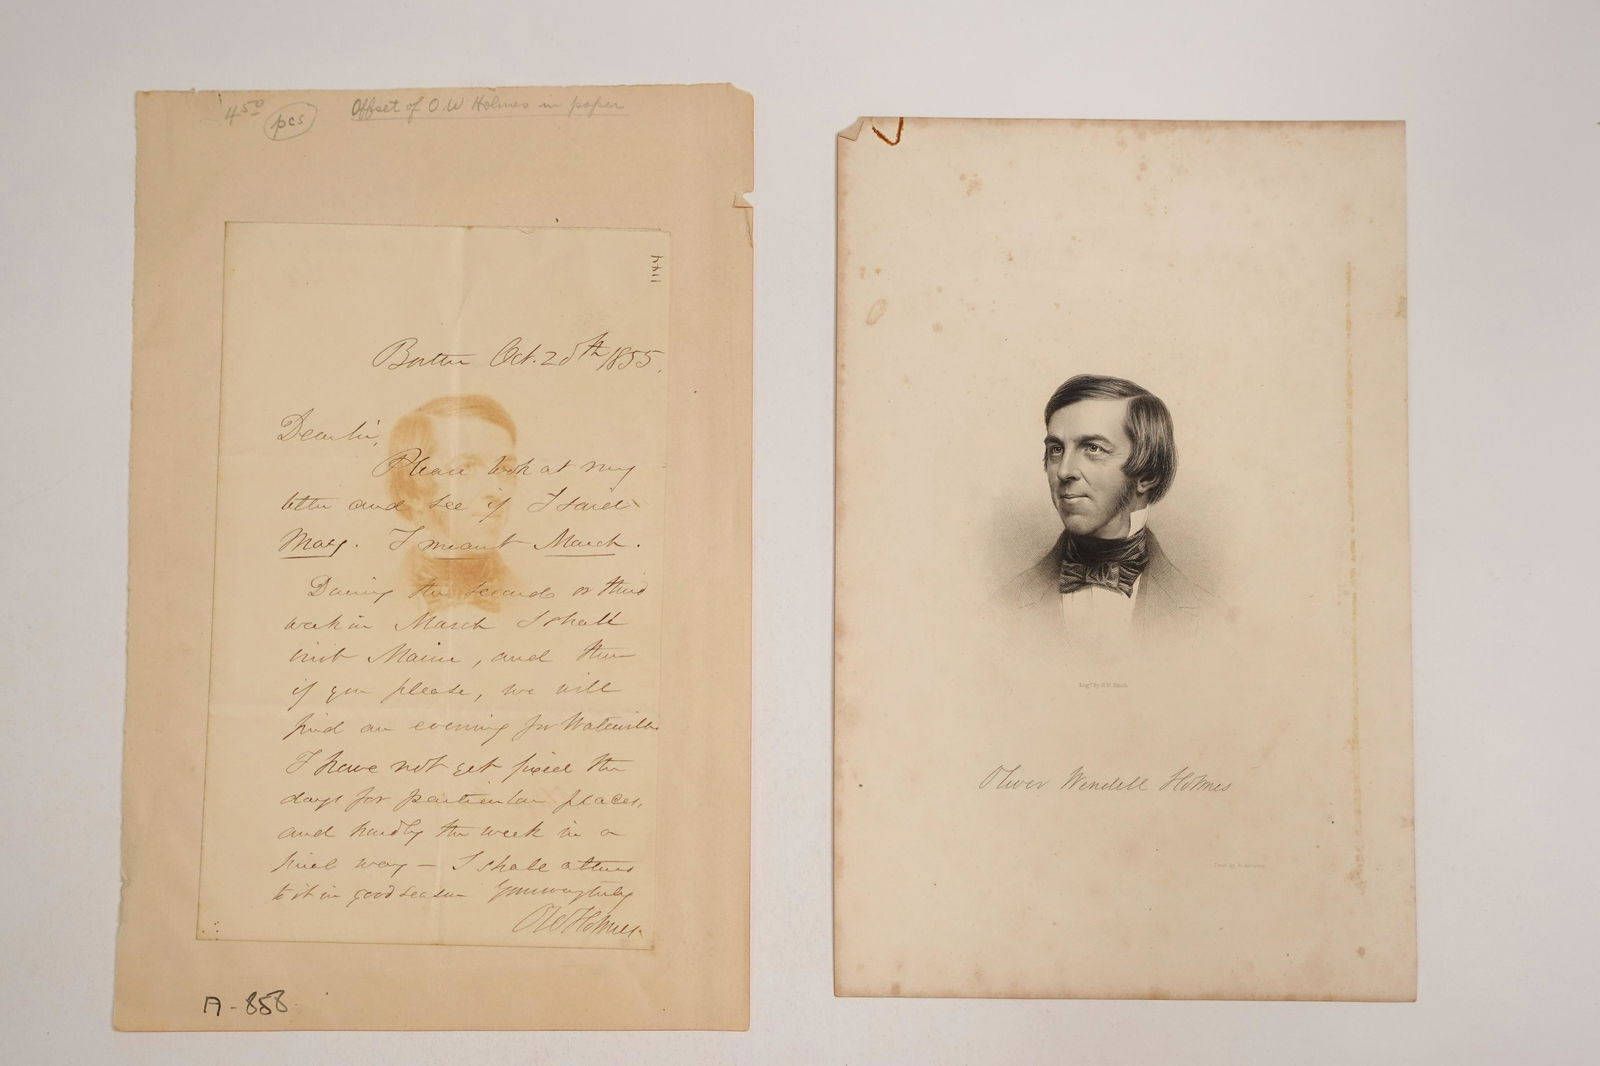 4 50
pcs
Offset of O.W Holmes in paper
1144
Boston Oct. 20th 1855.
Dear Sir,
Please look at my
letter and see if I said
May. I meant March.
During the second or third
week in March I shall
visit Maine, and then
if you please, we will
find an evening for Waterville
I have not yet fixed the
days for particular places,
and hardly the week in a
final way — I shall attend
to it in good season Yours very truly
OW Holmes.
A-858
Eng'd by H.W. Smith
Oliver Wendell Holmes